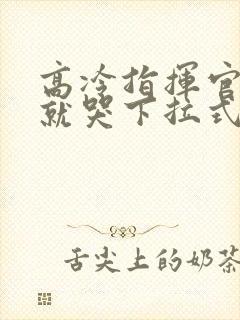 高冷指揮官
就哭下拉式
舌尖上的奶茶